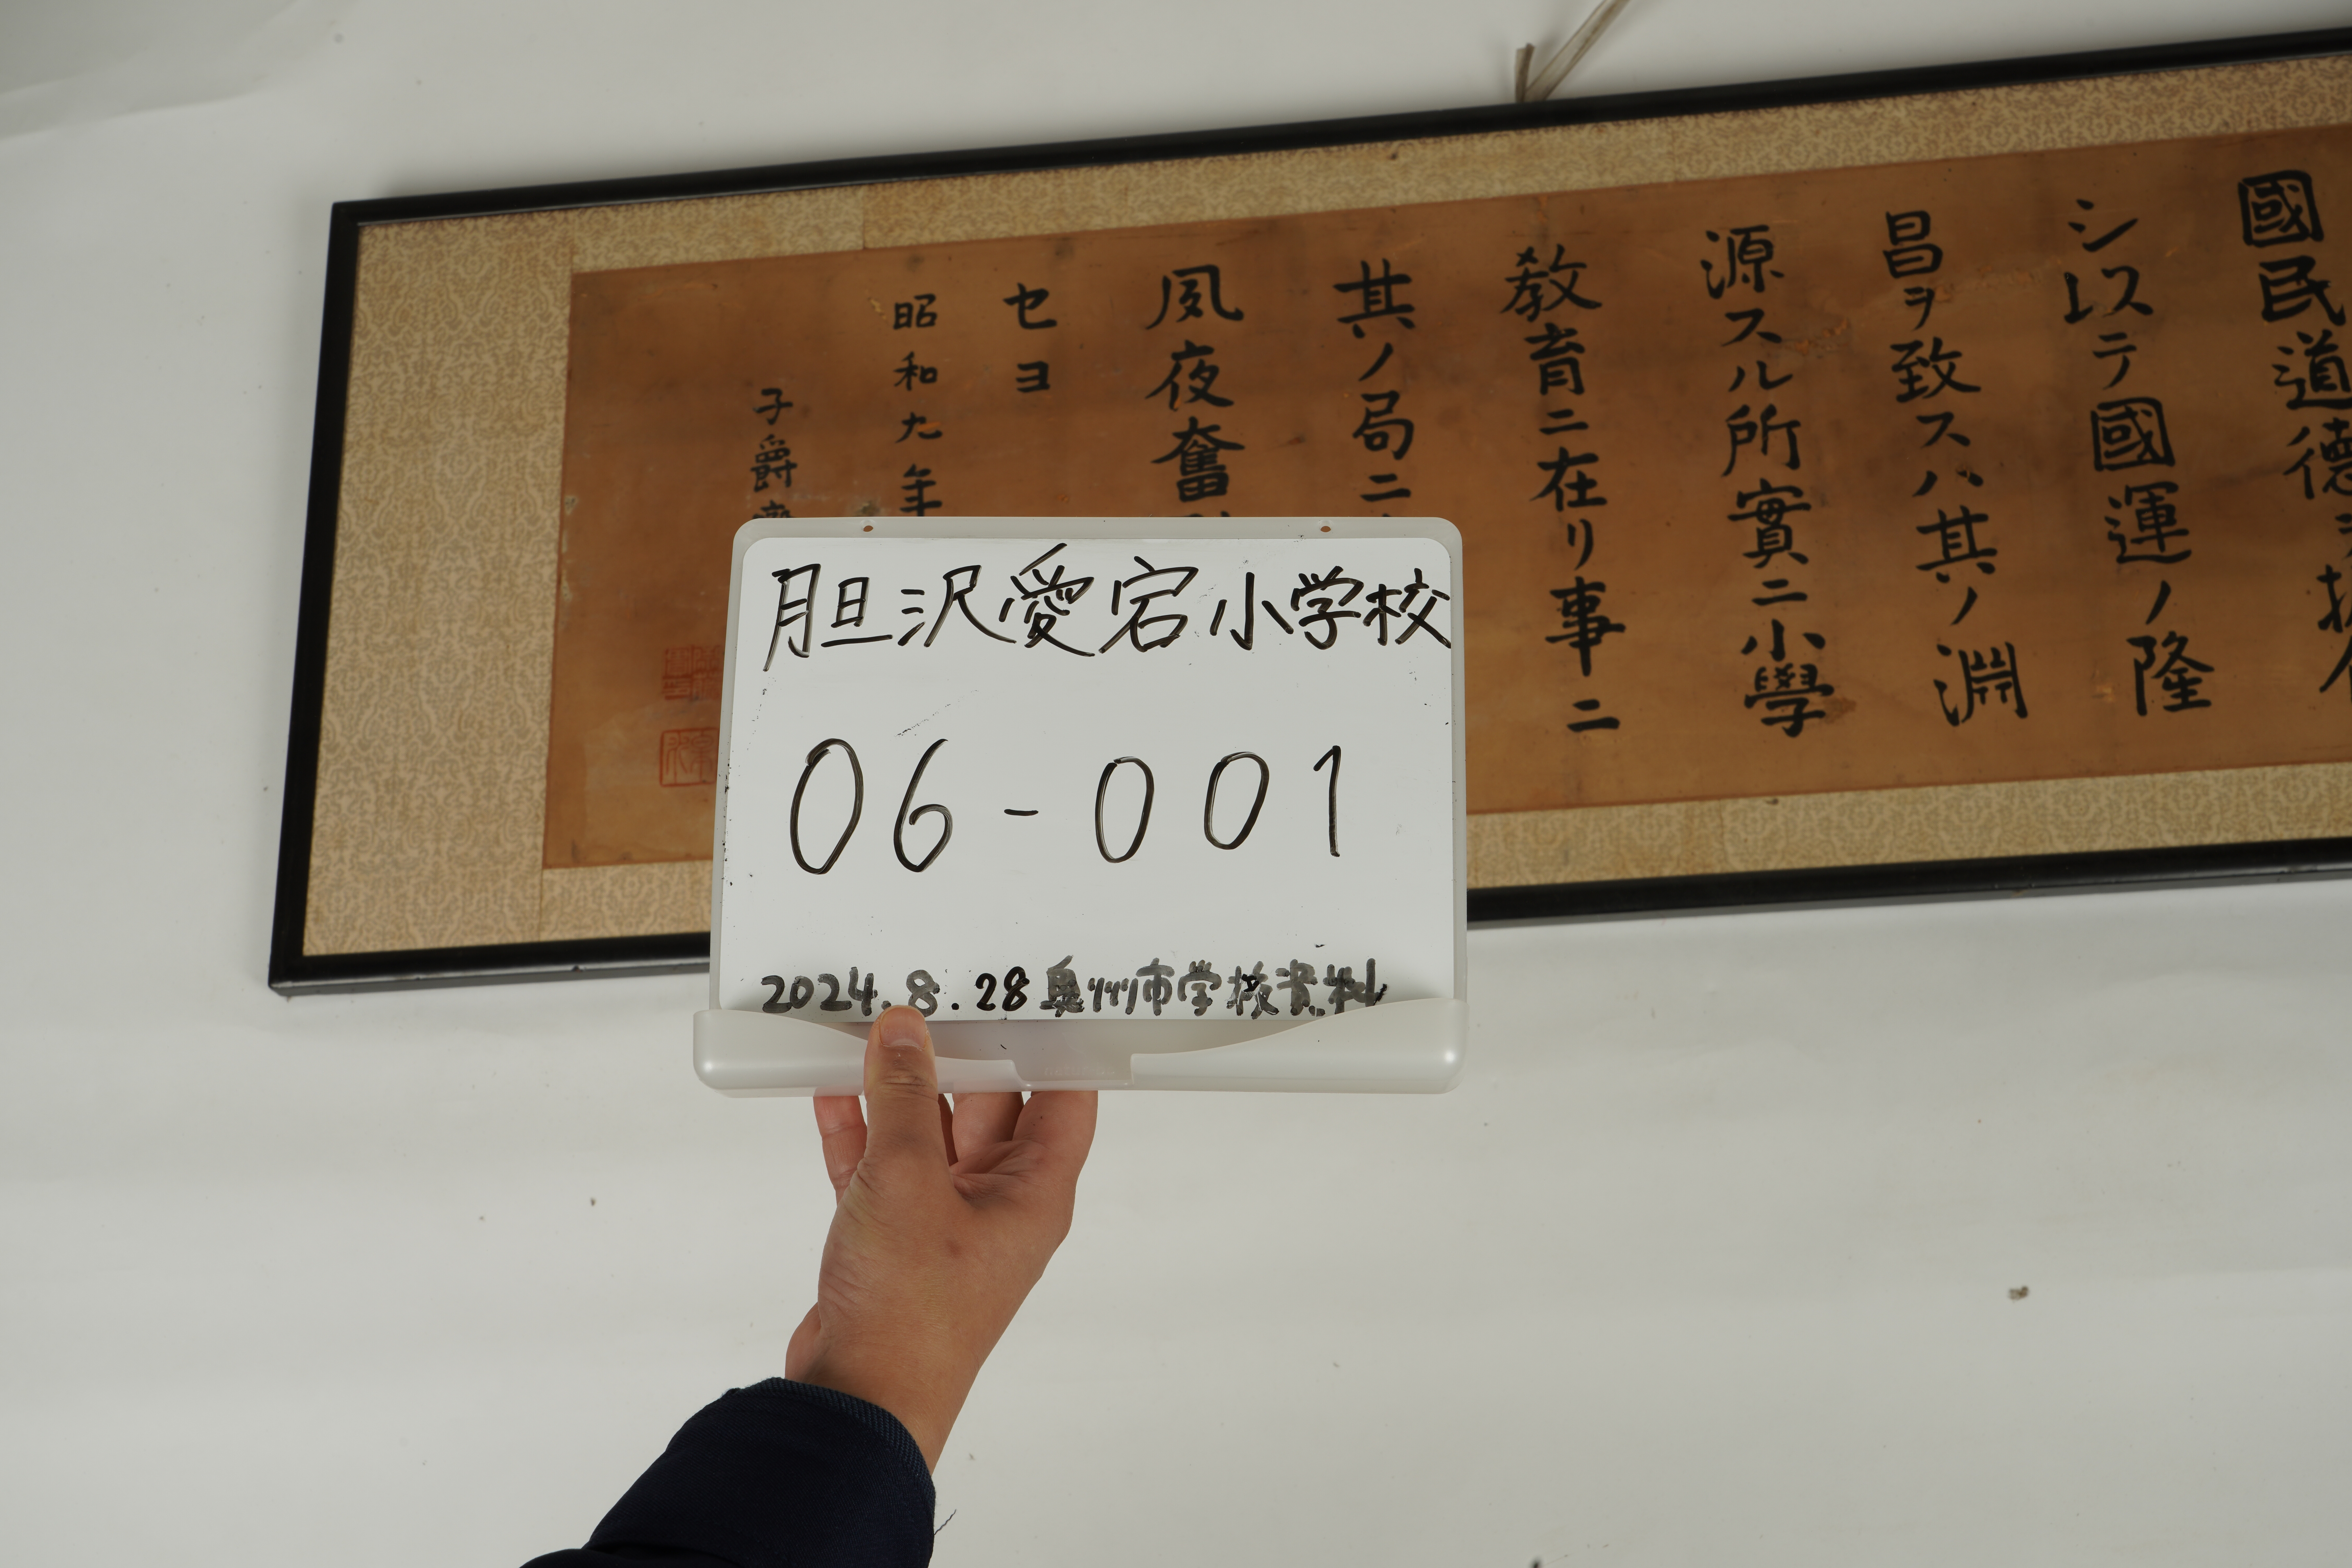 胆沢愛宕小学校
06-001
2024.8.28 奥州市学校資料
國民道德
シ以テ國運ノ隆
昌ヲ致スハ其ノ淵
源スル所實ニ小學
教育ニ在リ事ニ
其ノ局ニ
夙夜奮
セヨ
昭和九年
子爵齋